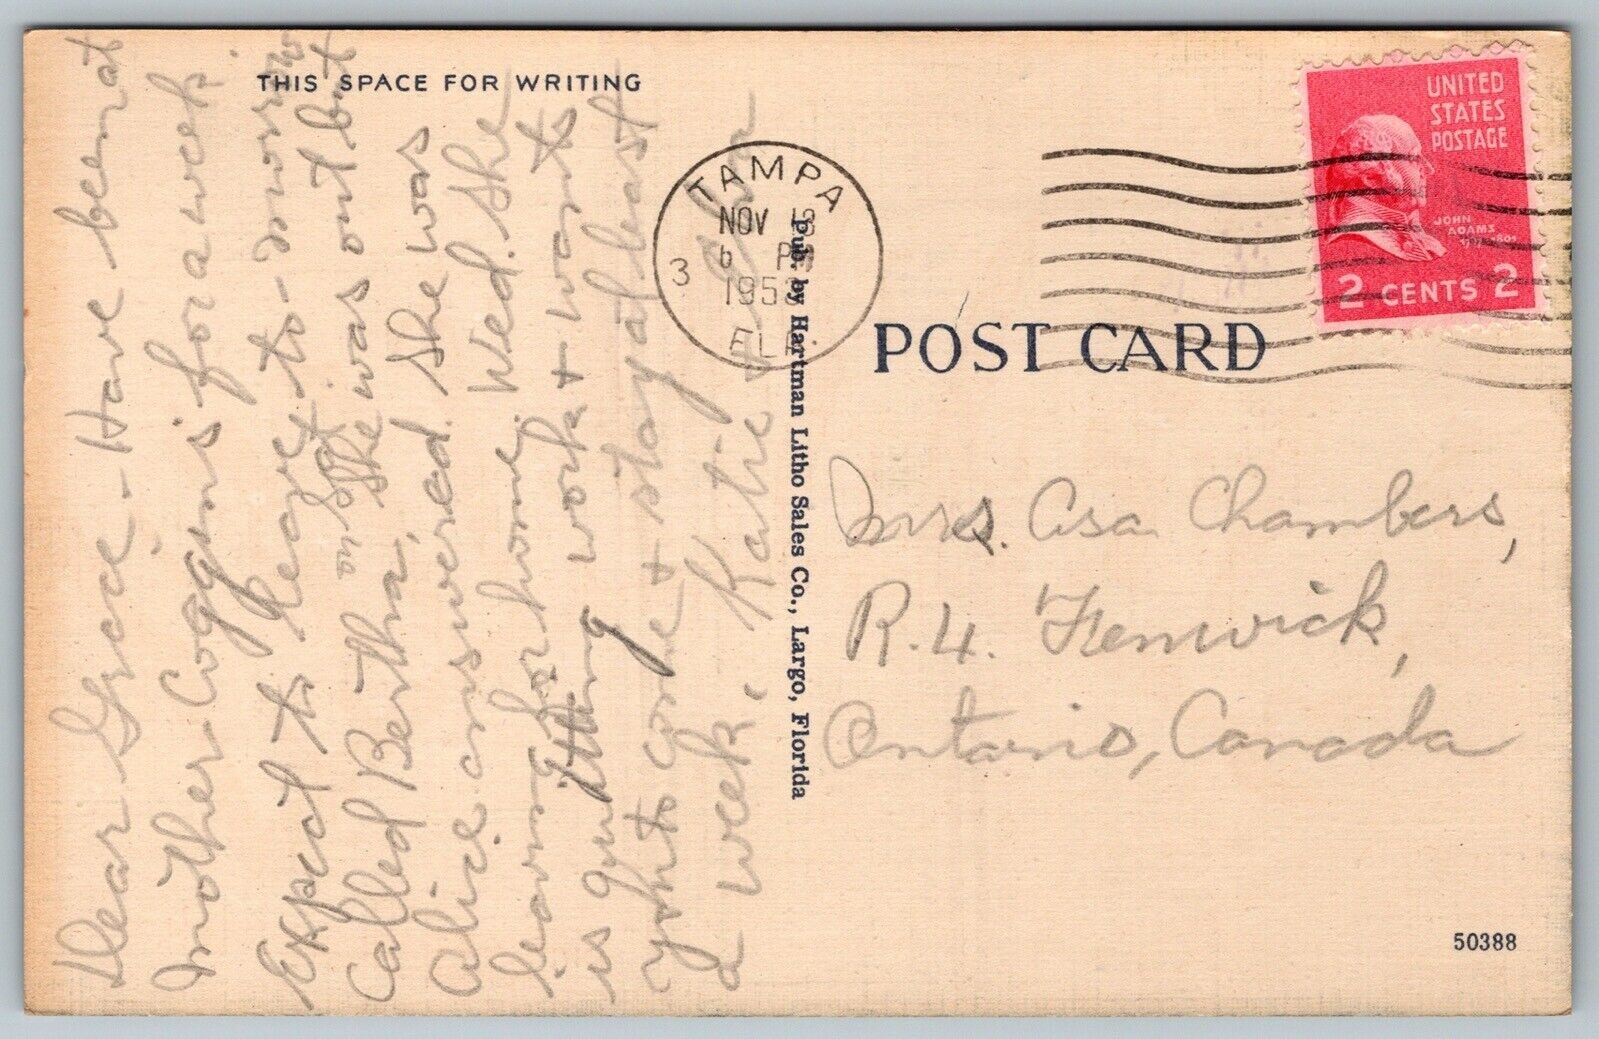 THIS SPACE FOR WRITING
Dear Grace - Have been at
Mother Coggin's for a week
Expect to leave to-morrow
on
Called Bertha, she was out but
Alice answered. She was
leaving for home Wed. She
is quitting work & wants
to come & stay at least
a week. Katie &
Pub. by Hartman Litho Sales Co., Largo, Florida
TAMPA
NOV 18
6 PM
195
3
FLA
UNITED
STATES
POSTAGE
JOHN
ADAMS
2 CENTS 2
POST CARD
Mrs. Asa Chambers,
R.4. Fenwick,
Ontario, Canada
50388